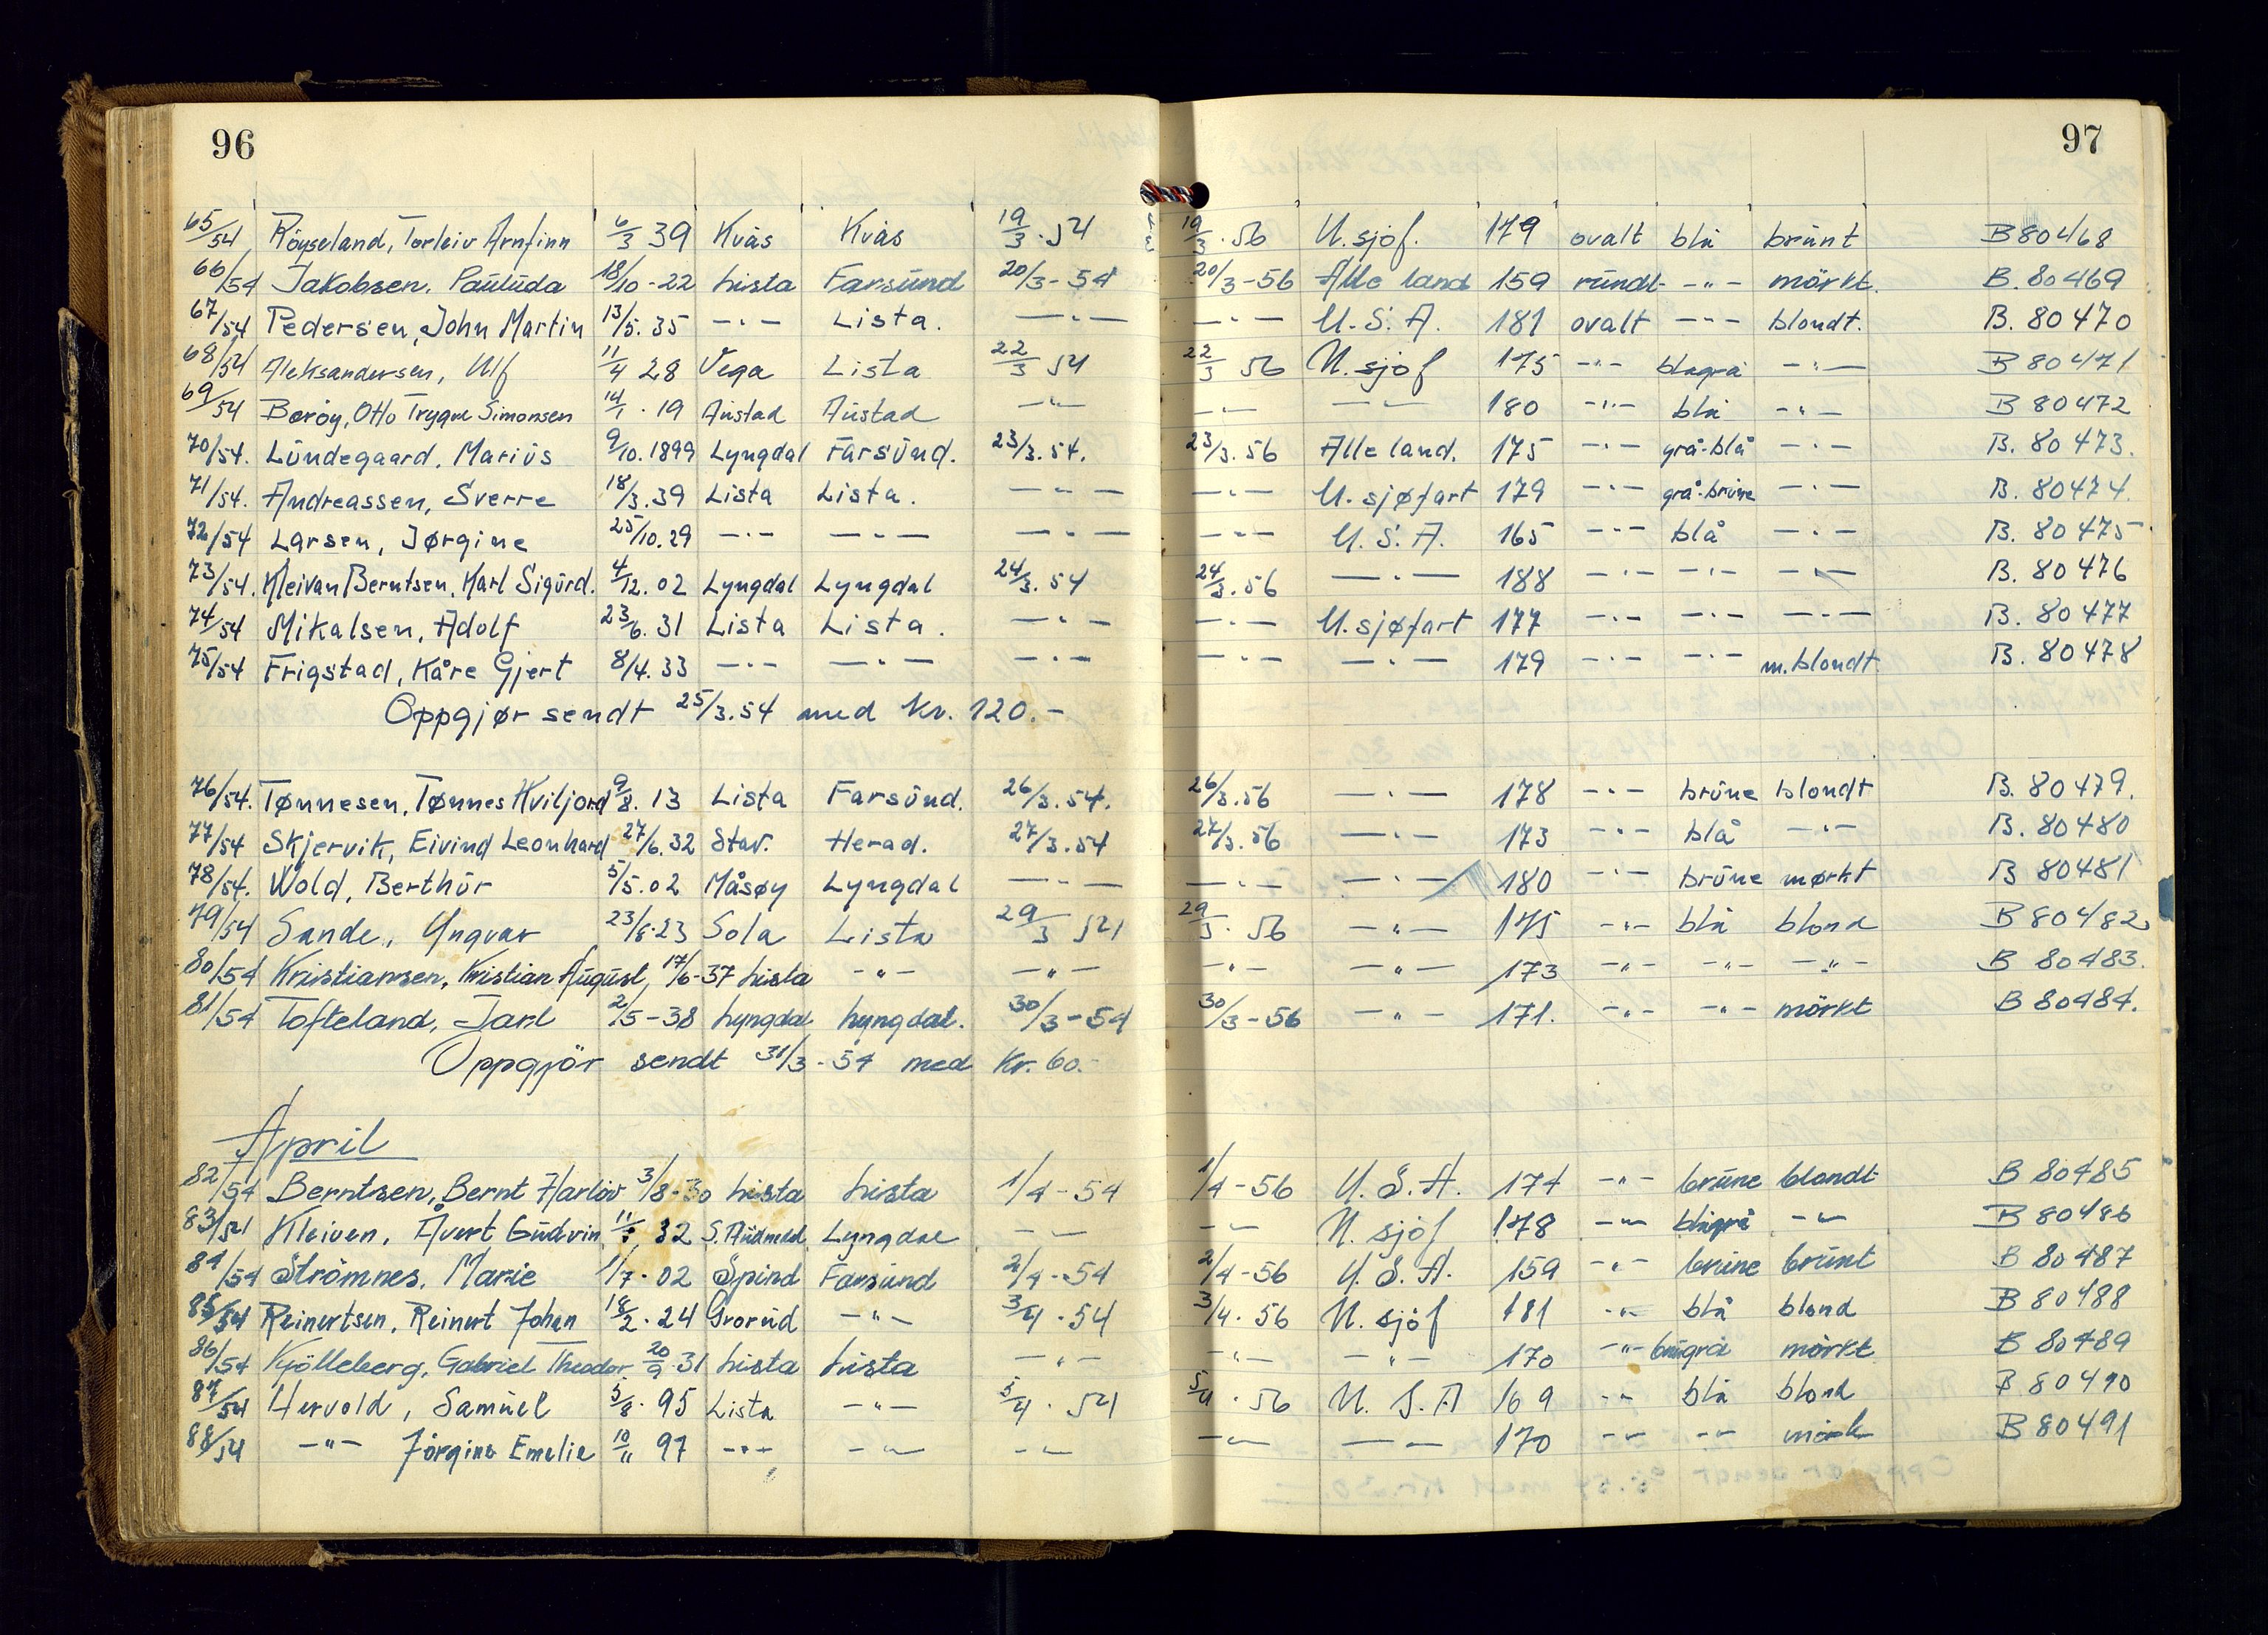 96 97
65/54 Röyseland, Torleiv Arnfinn 6/3 39 Kvås Kvås 19/3 . 54 19/3 . 56 U. sjöf. 179 ovalt blå brunt B 80468
66/54 Jakobsen, Paulüda 18/10 - 22 Lista Farsund 20/3 - 54 20/3 - 56 Alle land 159 rundt - " - mörkt. B. 80469
67/54 Pedersen, John Martin 13/5. 35 - " - Lista. - " - - " - U. S. A. 181 ovalt - " - blondt. B. 80470
68/54 Aleksandersen, Ulf 11/4 28 Vega Lista 22/3 54 22/3 56 U. sjöf 175 - " - blågrå - " - B 80471
69/54 Boröy, Otto Trygve Simonsen 14/1 . 19 Austad Austad - " - - " - - " - 180 - " - blå - " - B 80472
70/54. Lundegaard, Marius 9/10. 1899 Lyngdal Farsund. 23/3. 54. 23/3. 56 Alle land. 175 - " - grå-blå - " - B. 80473.
71/54. Andreassen, Sverre 18/3. 39 Lista Lista. - " - - " - U. sjøfart 179 - " - grå-brune - " - B. 80474.
72/54 Larsen, Jørgine 25/10. 29 - " - - " - - " - - " - U. S. A. 165 - " - blå - " - B. 80475
73/54. Kleivan Berntsen, Karl Sigurd. 4/12. 02 Lyngdal Lyngdal 24/3. 54 24/3. 56 - " - 188 - " - - " - - " - B. 80476
74/54 Mikalsen, Adolf 23/6. 31 Lista Lista. - " - - " - U. sjøfart 177 - " - - " - - " - B. 80477
75/54 Frigstad, Kåre Gjert 8/4. 33 - " - - " - - " - - " - - " - 179 - " - - " - m. blondt. B. 80478
Oppgjør sendt 25/3. 54 med kr. 120. -
76/54. Tønnesen, Tønnes Kviljord 9/8. 13 Lista Farsund. 26/3. 54. 26/3. 56 - " - 178 - " - brune blondt B. 80479.
77/54 Skjervik, Eivind Leonhard 27/6. 32 Stav. Herad. 27/3. 54 27/3. 56 - " - 173 - " - blå - " - B. 80480
78/54. Wold, Berthur 5/5. 02 Måsøy Lyngdal - " - - " - - " - 180 - " - brune mørkt B 80481
79/54 Sande, Yngvar 23/8. 23 Sola Lista 29/3 54 29/3. 56 - " - 175 - " - blå blond B 80482
80/54 Kristiansen, Kristian August, 17/6 - 37 Lista - " - - " - - " - - " - 173 - " - - " - - " - B 80483.
81/54 Tofteland, Jarl 2/5 - 38 Lyngdal Lyngdal. 30/3 - 54 30/3 - 56 - " - 171. - " - - " - mörkt B 80484.
Oppgjör sendt 31/3 - 54 med Kr. 60.-
April
82/54 Berntsen, Bernt Harlöv 3/8 - 30 Lista Lista 1/4 - 54 1/4 - 56 U. S. A. 174 - " - brune blondt B 80485
83/54 Kleiven, Åvert Gudvin 32 S. Audnedal Lyngdal - " - - " - U. sjöf 178 - " - blågrå - " - B 80486
84/54 Strömnes, Marie 1/7 . 02 Spind Farsund 2/4 - 54 2/4 - 56 U. S. A. 159 - " - brune brunt B 80487
85/54 Reinertsen, Reinert Johan 18/2 . 24 Grorud - " - 3/4 . 54 3/4 . 56 U. sjöf 181 - " - blå blond B 80488
86/54 Kjölleberg, Gabriel Theodor 20/9 . 31 Lista Lista - " - - " - - " - 170 - " - brungrå mörkt B 80489
87/54 Hervold, Samuel 5/8 . 95 Lista - " - 5/4 . 54 5/4 . 56 U. S. A 169 - " - blå blond B 80490
88/54 - " - Jörgine Emelie 10/11 97 - " - - " - - " - - " - - " - 170 - " - - " - mörk B 80491